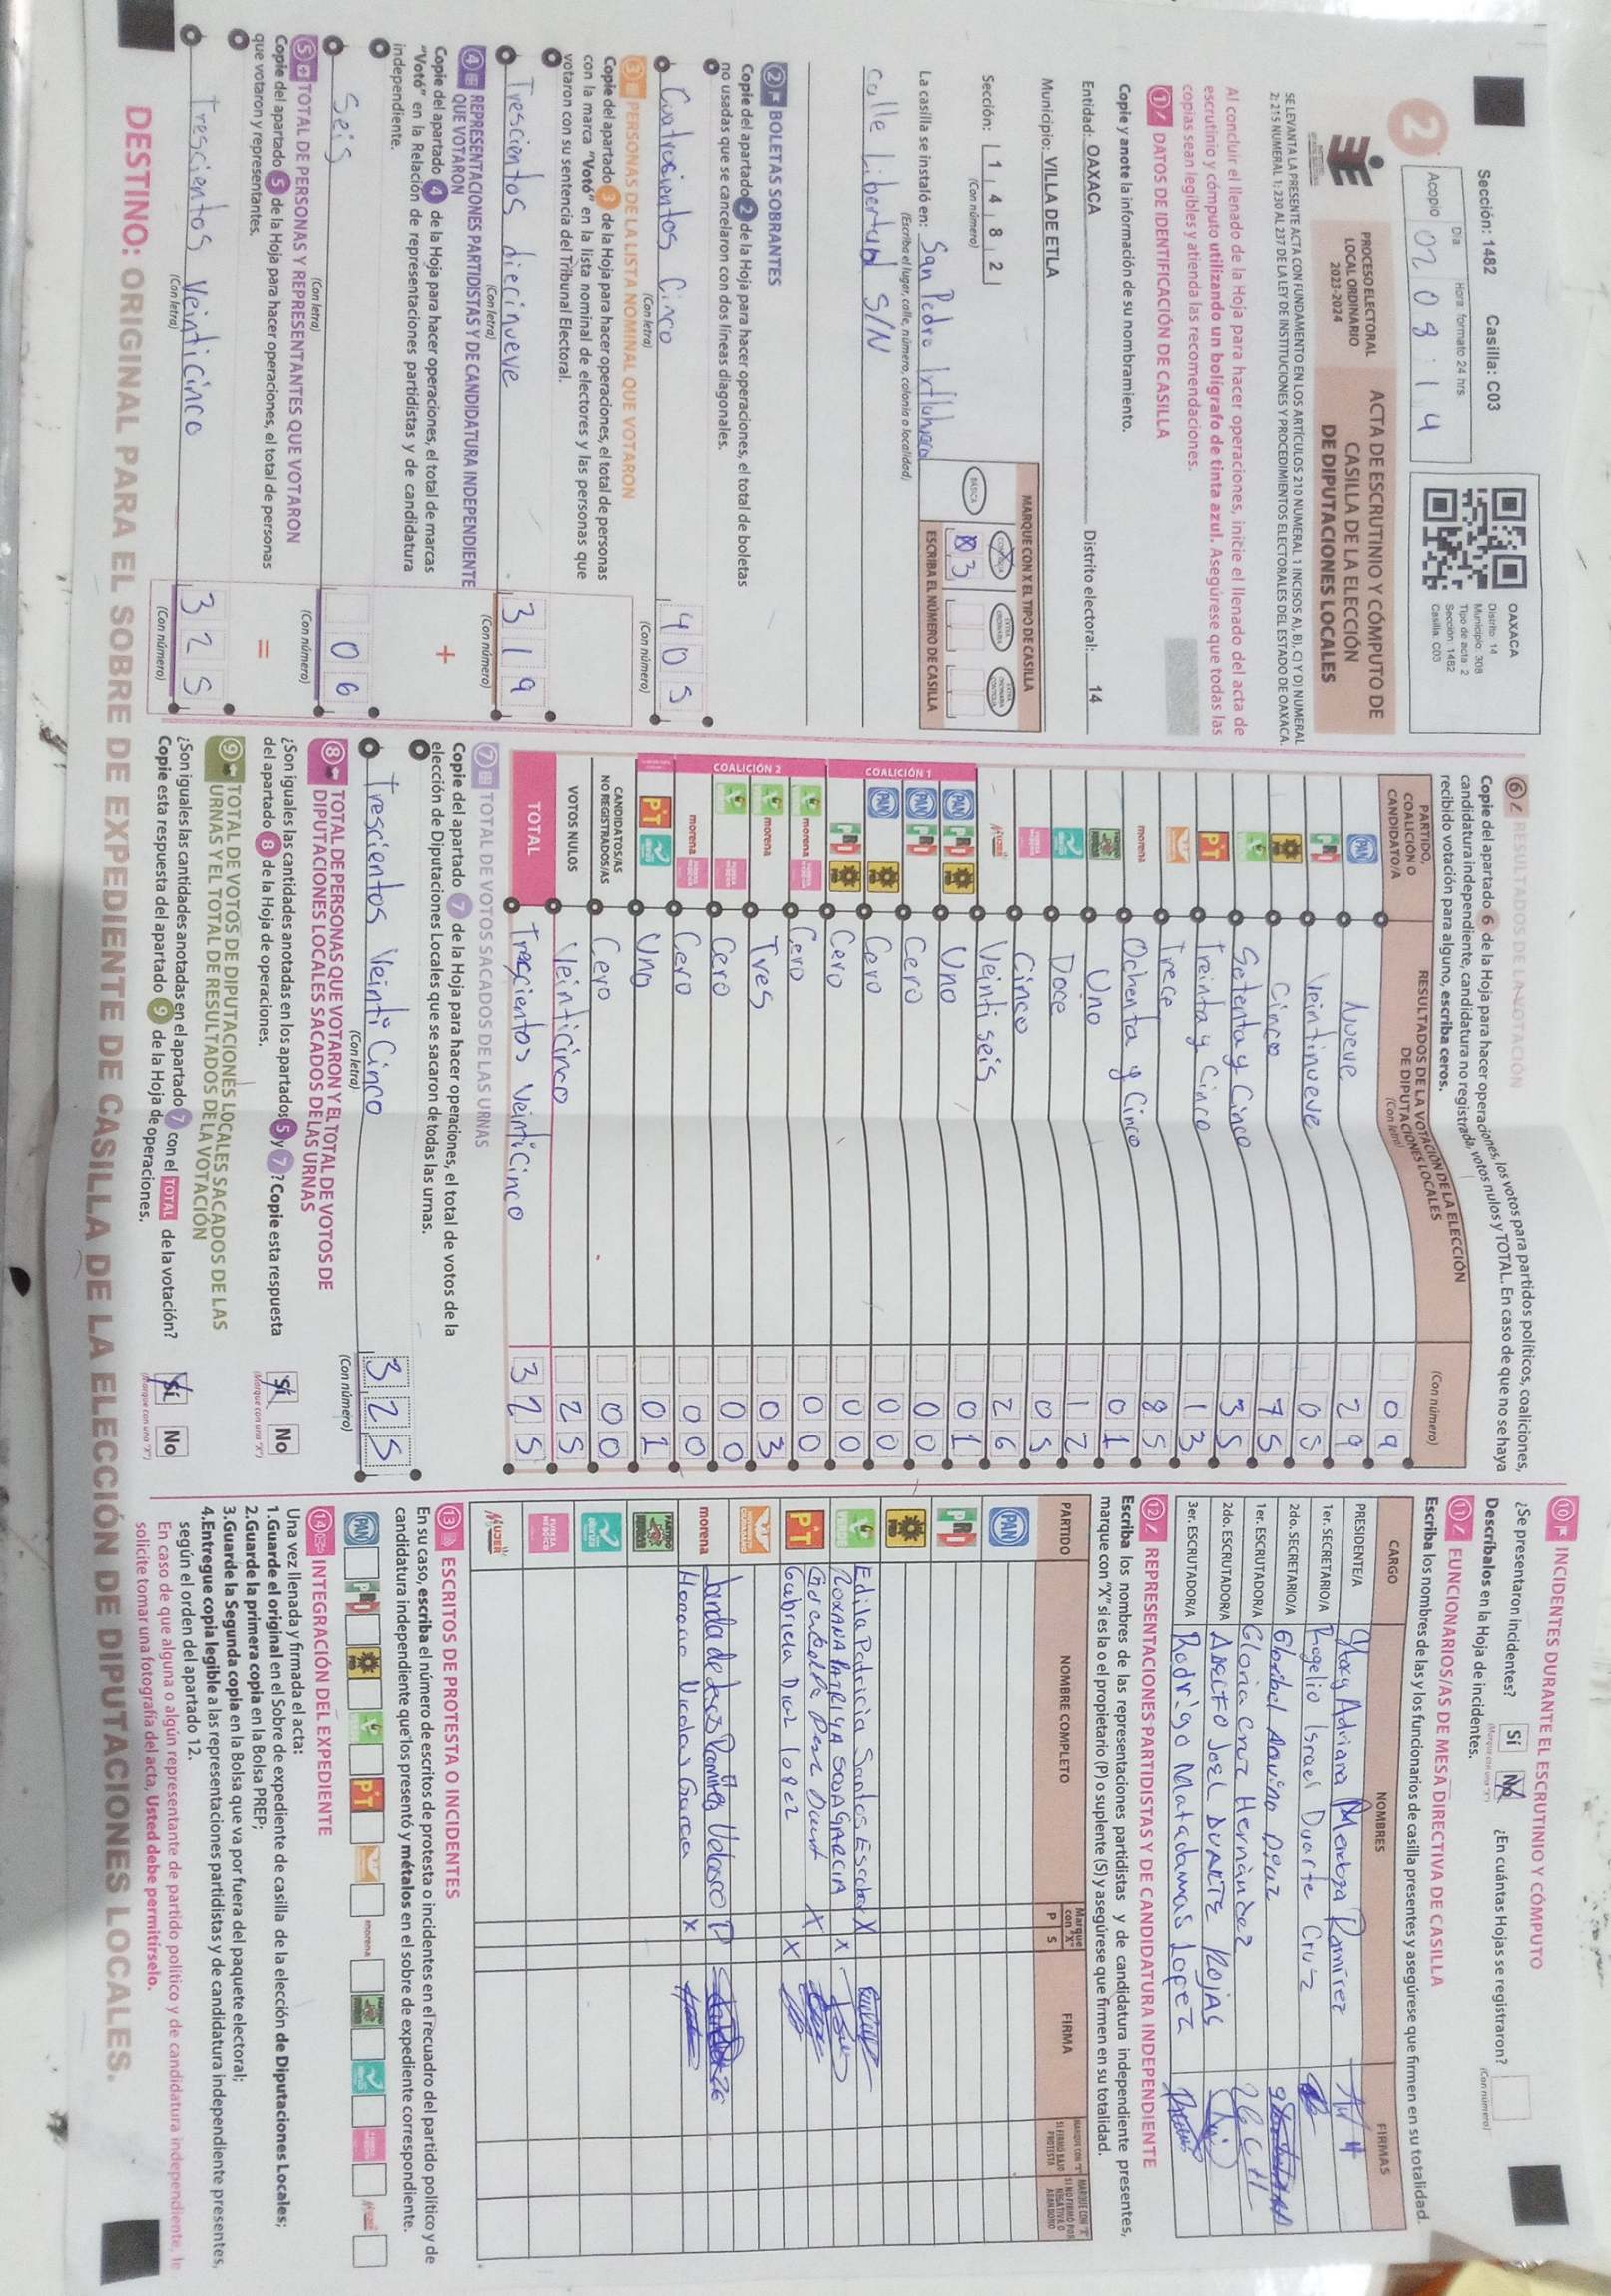 Sección: 1482 Casilla: C03
Día Hora formato 24 hrs.
2 Acopio 02 08:14
OAXACA
Distrito: 14
Municipio: 308
Tipo de acta: 2
Sección: 1482
Casilla: C03
PROCESO ELECTORAL
LOCAL ORDINARIO
2023-2024
ACTA DE ESCRUTINIO Y CÓMPUTO DE
CASILLA DE LA ELECCIÓN
DE DIPUTACIONES LOCALES
SE LEVANTA LA PRESENTE ACTA CON FUNDAMENTO EN LOS ARTÍCULOS 210 NUMERAL 1 INCISOS A), B), C) Y D) NUMERAL
2; 215 NUMERAL 1; 230 AL 237 DE LA LEY DE INSTITUCIONES Y PROCEDIMIENTOS ELECTORALES DEL ESTADO DE OAXACA.
Al concluir el llenado de la Hoja para hacer operaciones, inicie el llenado del acta de
escrutinio y cómputo utilizando un bolígrafo de tinta azul. Asegúrese que todas las
copias sean legibles y atienda las recomendaciones.
1 DATOS DE IDENTIFICACIÓN DE CASILLA
Copie y anote la información de su nombramiento.
Entidad: OAXACA Distrito electoral: 14
Municipio: VILLA DE ETLA
Sección: 1 4 8 2
(Con número)
MARQUE CON X EL TIPO DE CASILLA
BÁSICA CONTIGUA EXTRAORDINARIA EXTRAORDINARIA CONTIGUA
0 3
ESCRIBA EL NÚMERO DE CASILLA
La casilla se instaló en: San Pedro
(Escriba el lugar, calle, número, colonia o localidad)
calle Libertad S/N
2 BOLETAS SOBRANTES
Copie del apartado 2 de la Hoja para hacer operaciones, el total de boletas
no usadas que se cancelaron con dos líneas diagonales.
Cuatrosientos Cinco 405
(Con letra) (Con número)
3 PERSONAS DE LA LISTA NOMINAL QUE VOTARON
Copie del apartado 3 de la Hoja para hacer operaciones, el total de personas
con la marca "Votó" en la lista nominal de electores y las personas que
votaron con su sentencia del Tribunal Electoral.
Trescientos diecinueve 319
(Con letra) (Con número)
4 REPRESENTACIONES PARTIDISTAS Y DE CANDIDATURA INDEPENDIENTE
QUE VOTARON
Copie del apartado 4 de la Hoja para hacer operaciones, el total de marcas
"Votó" en la Relación de representaciones partidistas y de candidatura
independiente.
+
Seis 06
(Con letra) (Con número)
5 TOTAL DE PERSONAS Y REPRESENTANTES QUE VOTARON
Copie del apartado 5 de la Hoja para hacer operaciones, el total de personas
que votaron y representantes.
=
Trescientos Veinticinco 325
(Con letra) (Con número)
6 RESULTADOS DE LA VOTACIÓN
Copie del apartado 6 de la Hoja para hacer operaciones, los votos para partidos políticos, coaliciones,
candidatura independiente, candidatura no registrada, votos nulos y TOTAL. En caso de que no se haya
recibido votación para alguno, escriba ceros.
PARTIDO,
COALICIÓN O
CANDIDATO/A
RESULTADOS DE LA VOTACIÓN DE LA ELECCIÓN
DE DIPUTACIONES LOCALES
(Con letra) (Con número)
PAN Nueve 09
PRI Veintinueve 29
PRD Cinco 05
VERDE Setenta y Cinco 75
PT Treinta y Cinco 35
Trece 13
morena Ochenta y Cinco 85
Uno 01
Doce 12
Cinco 05
MUJER Veintiseis 26
COALICIÓN 1
PAN PRI PRD Uno 01
PAN PRI Cero 00
PAN PRD Cero 00
PRI PRD Cero 00
COALICIÓN 2
VERDE morena FUERZA POR MÉXICO Cero 00
VERDE morena Tres 03
VERDE FUERZA POR MÉXICO Cero 00
morena FUERZA POR MÉXICO Cero 00
PT Uno 01
CANDIDATOS/AS
NO REGISTRADOS/AS Cero 00
VOTOS NULOS Veinticinco 25
TOTAL Trescientos Veinticinco 325
7 TOTAL DE VOTOS SACADOS DE LAS URNAS
Copie del apartado 7 de la Hoja para hacer operaciones, el total de votos de la
elección de Diputaciones Locales que se sacaron de todas las urnas.
Trescientos Veinti Cinco 325
(Con letra) (Con número)
8 TOTAL DE PERSONAS QUE VOTARON Y EL TOTAL DE VOTOS DE
DIPUTACIONES LOCALES SACADOS DE LAS URNAS
¿Son iguales las cantidades anotadas en los apartados 5 y 7? Copie esta respuesta
del apartado 8 de la Hoja de operaciones.
Sí No
(Marque con una "X")
9 TOTAL DE VOTOS DE DIPUTACIONES LOCALES SACADOS DE LAS
URNAS Y EL TOTAL DE RESULTADOS DE LA VOTACIÓN
¿Son iguales las cantidades anotadas en el apartado 7 con el TOTAL de la votación?
Copie esta respuesta del apartado 9 de la Hoja de operaciones.
Sí No
(Marque con una "X")
10 INCIDENTES DURANTE EL ESCRUTINIO Y CÓMPUTO
¿Se presentaron incidentes? Sí No ¿En cuántas Hojas se registraron?
(Marque con una "X") (Con número)
Descríbalos en la Hoja de incidentes.
11 FUNCIONARIOS/AS DE MESA DIRECTIVA DE CASILLA
Escriba los nombres de las y los funcionarios de casilla presentes y asegúrese que firmen en su totalidad.
CARGO NOMBRES FIRMAS
PRESIDENTE/A Adriana Mendoza Ramírez
1er. SECRETARIO/A Rogelio Israel Duarte Cruz
2do. SECRETARIO/A
1er. ESCRUTADOR/A Gloria Cruz Hernández
2do. ESCRUTADOR/A Joel DUARTE ROJAS
3er. ESCRUTADOR/A Rodrigo Matadamas Lopez
12 REPRESENTACIONES PARTIDISTAS Y DE CANDIDATURA INDEPENDIENTE
Escriba los nombres de las representaciones partidistas y de candidatura independiente presentes,
marque con "X" si es la o el propietario (P) o suplente (S) y asegúrese que firmen en su totalidad.
PARTIDO NOMBRE COMPLETO Marque con "X" P S FIRMA
MARQUE CON "X" SI FIRMÓ BAJO PROTESTA
MARQUE CON "X" SI NO FIRMÓ POR NEGATIVA O ABANDONO
PAN
PRI
PRD
VERDE Edila Patricia Santos X
ROXANA SOSA GARCIA X
PT X
Gabriela Diaz Lopez X
morena P
Honorio Nicolas Garcia X
MUJER
13 ESCRITOS DE PROTESTA O INCIDENTES
En su caso, escriba el número de escritos de protesta o incidentes en el recuadro del partido político y de
candidatura independiente que los presentó y métalos en el sobre de expediente correspondiente.
PAN PRI PRD VERDE PT morena MUJER
14 INTEGRACIÓN DEL EXPEDIENTE
Una vez llenada y firmada el acta:
1.Guarde el original en el Sobre de expediente de casilla de la elección de Diputaciones Locales;
2.Guarde la primera copia en la Bolsa PREP;
3.Guarde la Segunda copia en la Bolsa que va por fuera del paquete electoral;
4.Entregue copia legible a las representaciones partidistas y de candidatura independiente presentes,
según el orden del apartado 12.
En caso de que alguna o algún representante de partido político y de candidatura independiente, le
solicite tomar una fotografía del acta, Usted debe permitírselo.
DESTINO: ORIGINAL PARA EL SOBRE DE EXPEDIENTE DE CASILLA DE LA ELECCIÓN DE DIPUTACIONES LOCALES.